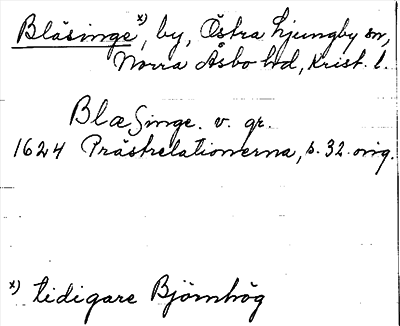 Bläsinge x), by, Östra Ljungby sn,
Norra Åsbo hd, Krist. l.
BlæSinge. v. gr.
1624 Prästrelationerna, s. 32. orig.
x) tidigare Björnhög